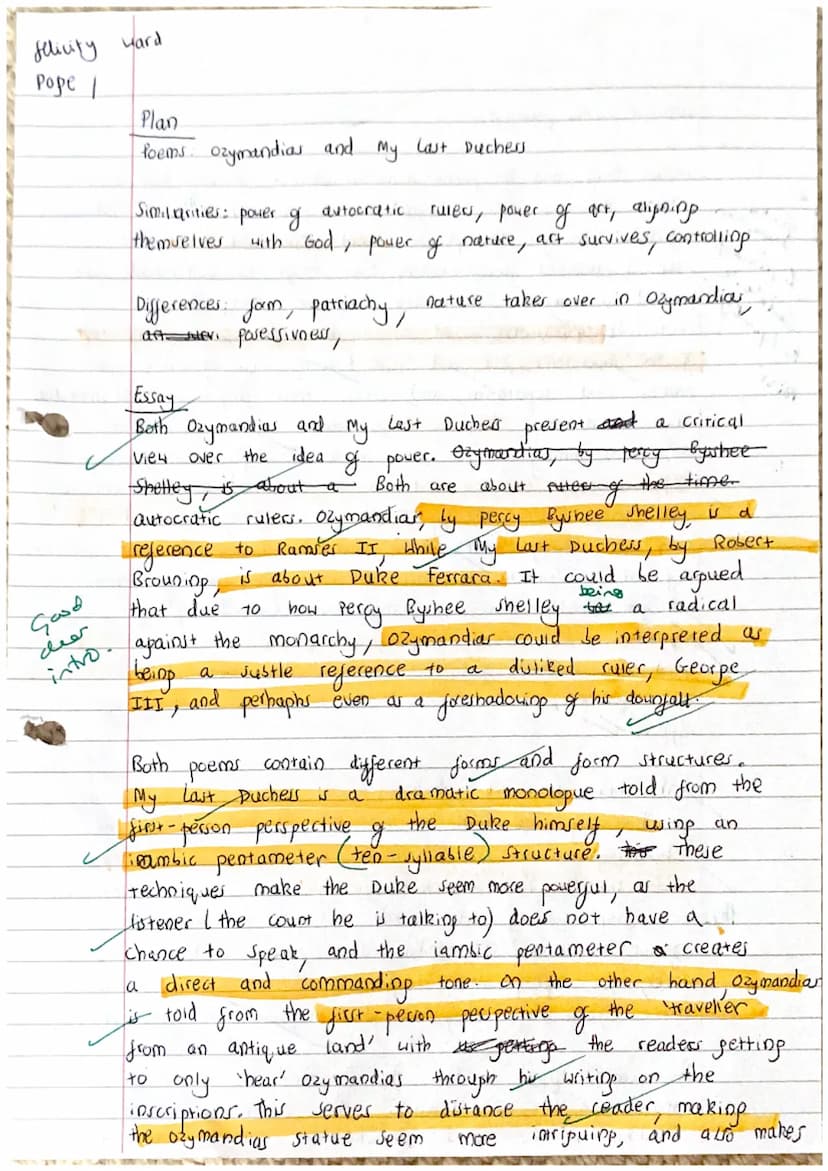 Felicity Ward
Page 1
Plan
Poems: Ozymandias and My Last Duchess
Similarities: power of autocratic rulers, power of art, aligning
themselves with God, power of nature, art survives, controlling
Differences: form, patriachy, nature takes over in Ozymandias,
art surv. posessivness,
Essay
Both Ozymandias and My Last Duchess present and a critical
view over the idea of power. Ozymandias, by percy Byshee
Shelley, is about a Both are about rulers of the time
autocratic rulers. Ozymandias, by percy Byshee Shelley, is a
reference to Ramses II, while My Last Duchess, by Robert
Browning, is about Duke Ferrara. It could be argued
being
that due to how Percy Byshee Shelley a radical
Good
clear
intro.
against the monarchy, Ozymandias could be interpreted as
being a sustle reference to a disliked ruler, George
III, and perhaphs even as a foreshadowing of his downfall.
Both poems contain different forms and form structures.
My Last Duchess is a dramatic monologue told from the
first-person perspective of the Duke himself, using an
iambic pentameter (ten-syllable) structure. These
techniques make the Duke seem more powerful, as the
listener (the count he is talking to) does not have a
chance to speak, and the iambic pentameter creates
a direct and commanding tone. On the other hand, Ozymandias
is told from the first-person perspective of the 'traveller
from an antique land' with getting the readers getting
to only 'hear' Ozymandias through his writing on the
inscriptions. This serves to distance the reader, making
the Ozymandias statue seem more intriguing, and also makes